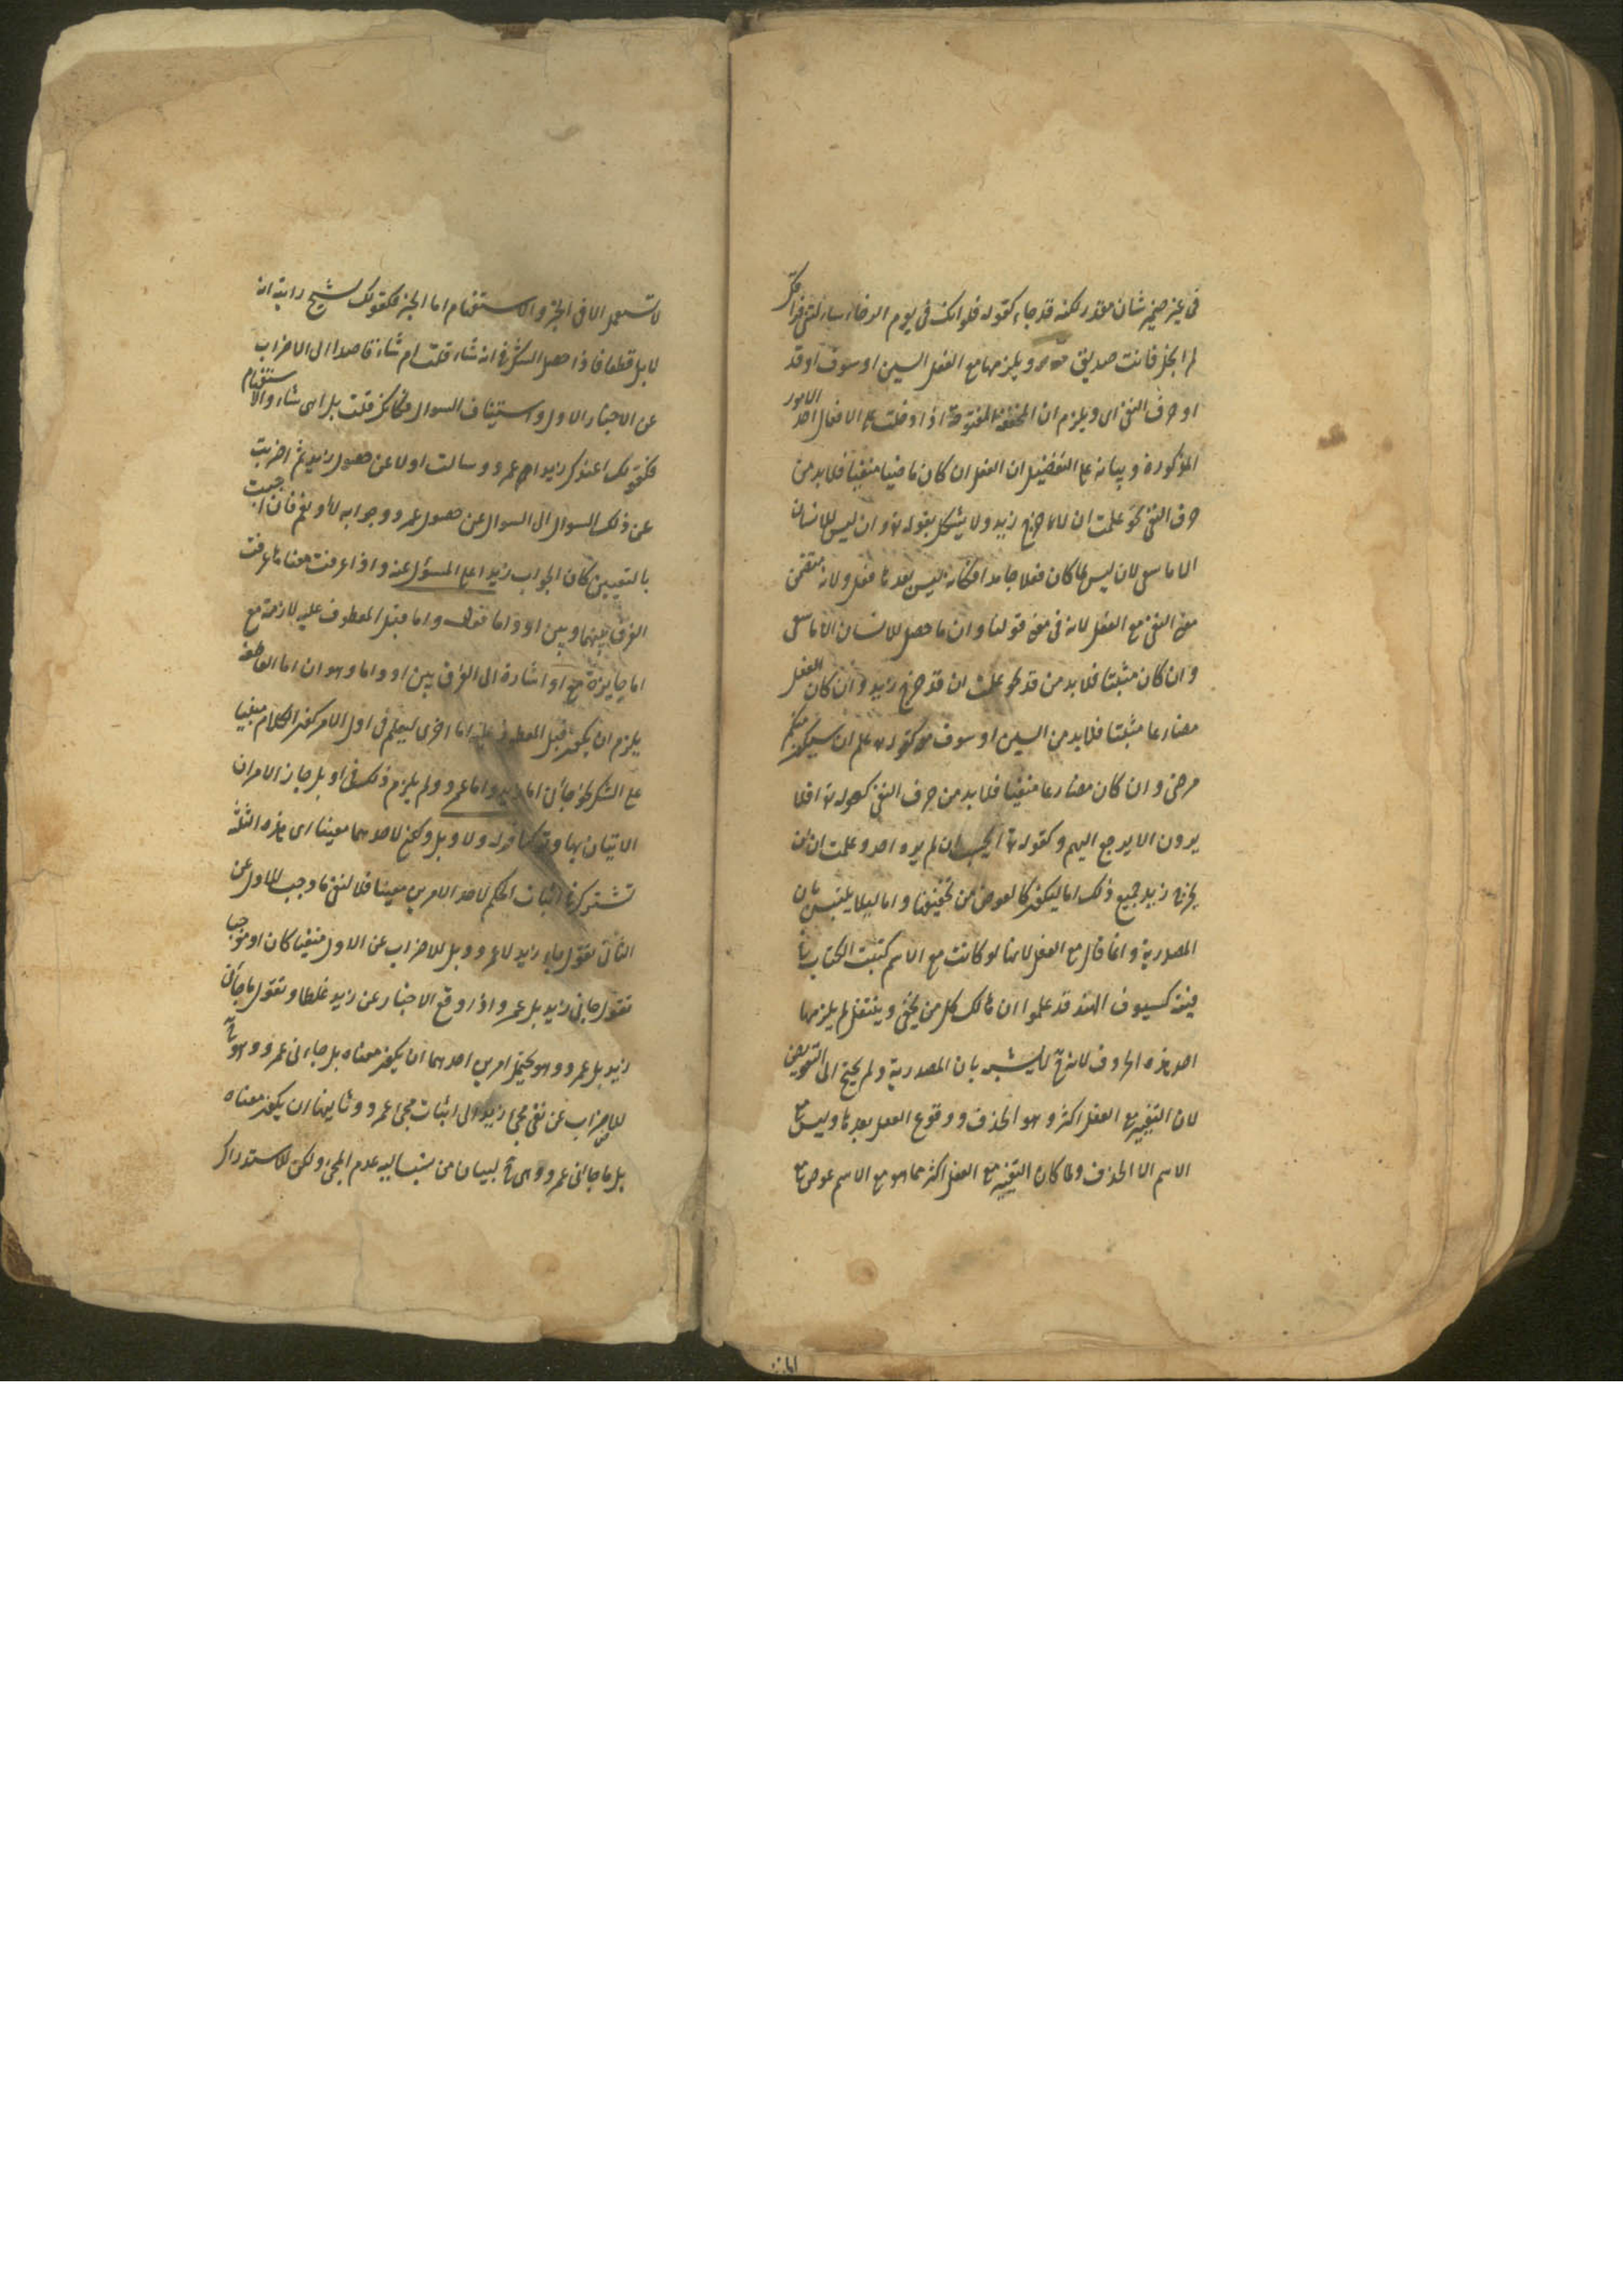 في غير ضمير شان مقدر لكنه قد جاء كقوله فلو انك في يوم الرخاء سالتني فراقك
لم ابخل وانت صديق ويلزمها مع الفعل السين او سوف او قد
او حرف النفي اى ويلزم ان المخففة المفتوحة اذا دخلت على الافعال احد الامور
المذكورة وبيانه على التفصيل ان الفعل ان كان ماضيا منفيا فلابد من
حرف النفي نحو علمت ان لا ما خرج زيد ولا يشكل بقوله تع وان ليس للانسان
الا ما سعى لان ليس لما كان فعلا جامدا فكانه ليس بعدها فعل ولانه متضمن
معنى النفي مع الفعل لانه في معنى قولنا وان ما حصل للانسان الا ما سعى
وان كان مثبتا فلابد من قد نحو علمت ان قد خرج زيد وان كان الفعل
مضارعا مثبتا فلابد من السين او سوف كقوله تع علم ان سيكون منكم
مرضى وان كان مضارعا منفيا فلابد من حرف النفي كقوله تع افلا
يرون الا يرجع اليهم وكقوله تع ايحسب ان لم يره احد وعلمت ان لن
يخرج زيد جميع ذلك اما ليكون كالعوض من تخفيفها واما ليلا يلتبس بان
المصدرية وانما قال مع الفعل لانها لو كانت مع الاسم كتبت الكتاب
فتية كسيوف الهند قد علموا ان هالك كل من يحفى وينتعل لم يلزمها
احد هذه الحروف لانه ح لا يشبه بان المصدرية ولم يحتج الى التعويض
لان التغيير مع الفعل اكثر وهو الحذف ووقوع الفعل بعدها وليس مع
الاسم الا الحذف ولما كان التغيير مع الفعل اكثر مما هو مع الاسم عوض مع
لا تستعمل الا في الخبر والاستفهام اما الخبر فكقولك لشبح رايته انه
لابل قطعا فاذا حصل الشك في انه شاء قلت ام شاء قاصدا الى الاضراب
عن الاخبار الاول واستيناف السوال فكانك قلت بل اهى شاء والاستفهام
فكقولك اعندك زيد ام عمرو سالت اولا عن حصول زيد ثم اضربت
عن ذلك السوال الى السوال عن حصول عمرو وجوابه لا او نعم فان اجبت
بالتعيين كان الجواب زيدا على المسؤل عنه واذا عرفت معناها عرفت
الفرق بينهما وبين او واما قوله واما قبل المعطوف عليه لازمة مع
اما جايزة مع او اشارة الى الفرق بين او واما وهو ان اما العاطفة
يلزم ان يكون قبل المعطوف عليه اما اخرى ليعلم في اول الامر كون الكلام مبنيا
على الشك نحو جائى اما زيد واما عمرو ولم يلزم ذلك في او بل جاز الامران
الاتيان بها وتركها قوله ولا وبل ولكن لاحدهما معينا اى هذه الثلثة
تشترك في اثبات الحكم لاحد الامرين معينا فلا لنفي ما وجب للاول عن
الثاني تقول جاء زيد لا عمرو وبل للاضراب عن الاول منفيا كان او موجبا
تقول جاني زيد بل عمرو اذا وقع الاخبار عن زيد غلطا وتقول ما جائى
زيد بل عمرو وهو يحتمل امرين احدهما ان يكون معناه بل جاءنى عمرو وهو ح
للاضراب عن نفي مجئ زيد الى اثبات مجئ عمرو وثانيهما ان يكون معناه
بل ما جائى عمرو وهى ح لبيان من ينسب اليه عدم المجئ ولكن للاستدراك